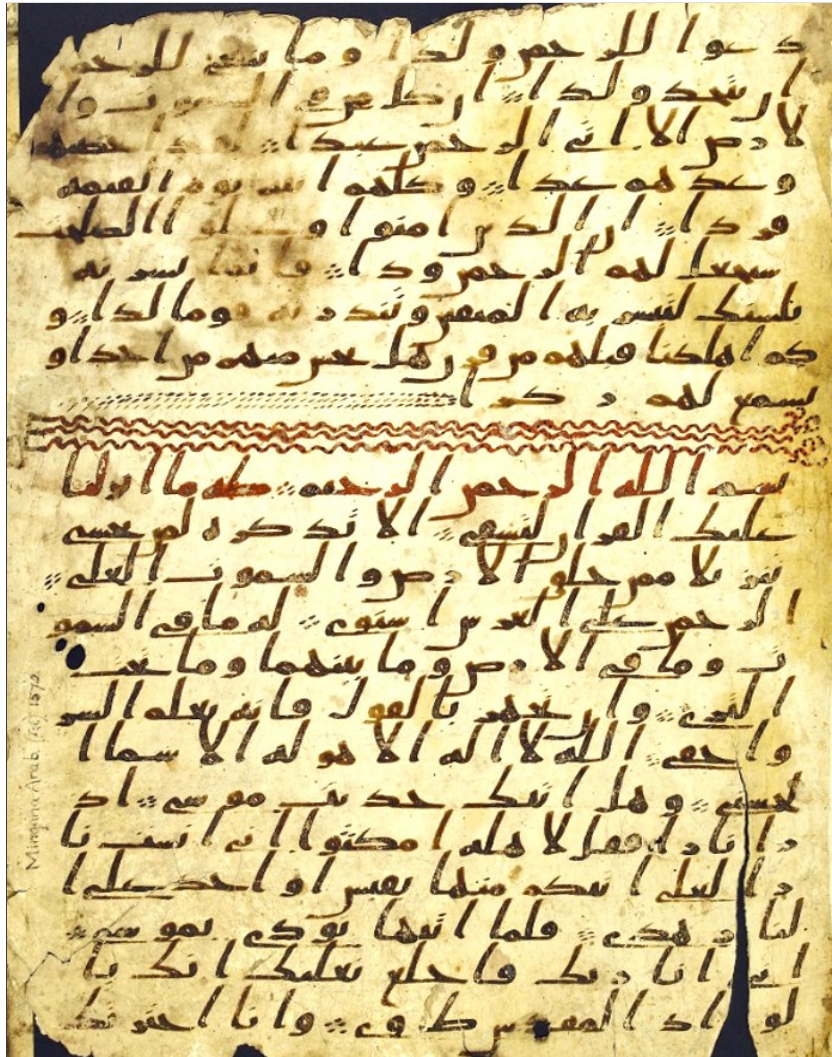 دعوا للرحمن ولدا وما ينبغي للرحمن
ان يتخذ ولدا ان كل من في السموت وا
لارض الا اتي الرحمن عبدا لقد احصيهم
وعدهم عدا وكلهم اتيه يوم القيمه
فردا ان الذين امنوا وعملوا الصلحت
سيجعل لهم الرحمن ودا فانما يسرنه
بلسنك لتبشر به المتقين وتنذر به قوما لدا و
كم اهلكنا قبلهم من قرن هل تحس منهم من احد او
تسمع لهم ركزا
بسم الله الرحمن الرحيم طه ما انزلنا
عليك القران لتشقى الا تذكره لمن يخشى
تنزيلا ممن خلق الارض والسموت العلى
الرحمن على العرش استوى له ما في السمو
ت وما في الارض وما بينهما وما تحت
الثرى وان تجهر بالقول فانه يعلم السر
واخفى الله لا اله الا هو له الاسما ا
لحسنى وهل اتيك حديث موسى اذ
را نارا فقل لاهله امكثوا اني انست نا
را لعلي اتيكم منها بقبس او اجد على ا
لنار هدى فلما اتيها نودي يموسى
اني انا ربك فاخلع نعليك انك با
لواد المقدس طوى وانا اخترتك
Mingana Arab. (Isl.) 1572